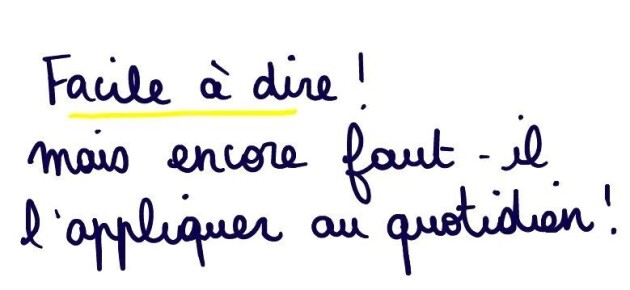 Facile à dire !
mais encore faut-il
l'appliquer au quotidien !